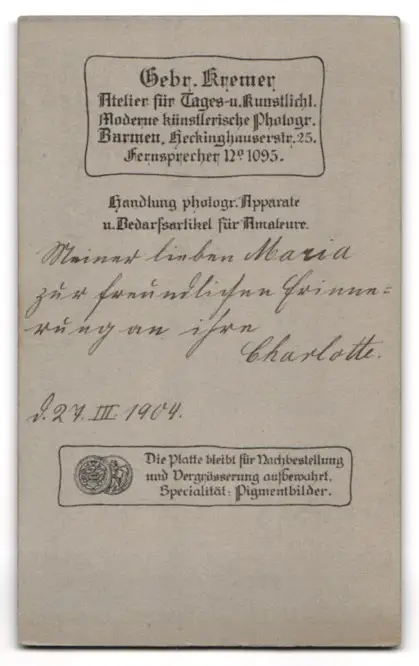 Gebr. Kremer
Atelier für Tages- u. Kunstlicht.
Moderne künstlerische Photogr.
Barmen, Heckinghauserstr. 25.
Fernsprecher No 1095.
Handlung photogr. Apparate
u. Bedarfsartikel für Amateure.
Meiner lieben Maria
zur freundlichen Erinne=
rung an ihre
Charlotte.
d. 27. III. 1904.
Die Platte bleibt für Nachbestellung
und Vergrösserung aufbewahrt.
Specialität: Pigmentbilder.